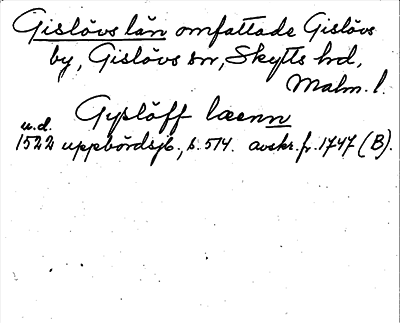 Gislövs län omfattade Gislövs
by, Gislövs sn, Skytts hd,
Malm. l.
Gyslöff laenn
u.d.
1522 uppbördsjb., s. 514. avskr. fr. 1747 (B).